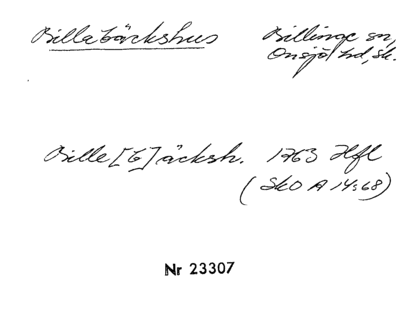 Billabäckshus Billinge sn,
Onsjö hd, sk.
Bille[b]äcksh. 1763 Hfl
(SkO A 14:68)
Nr 23307